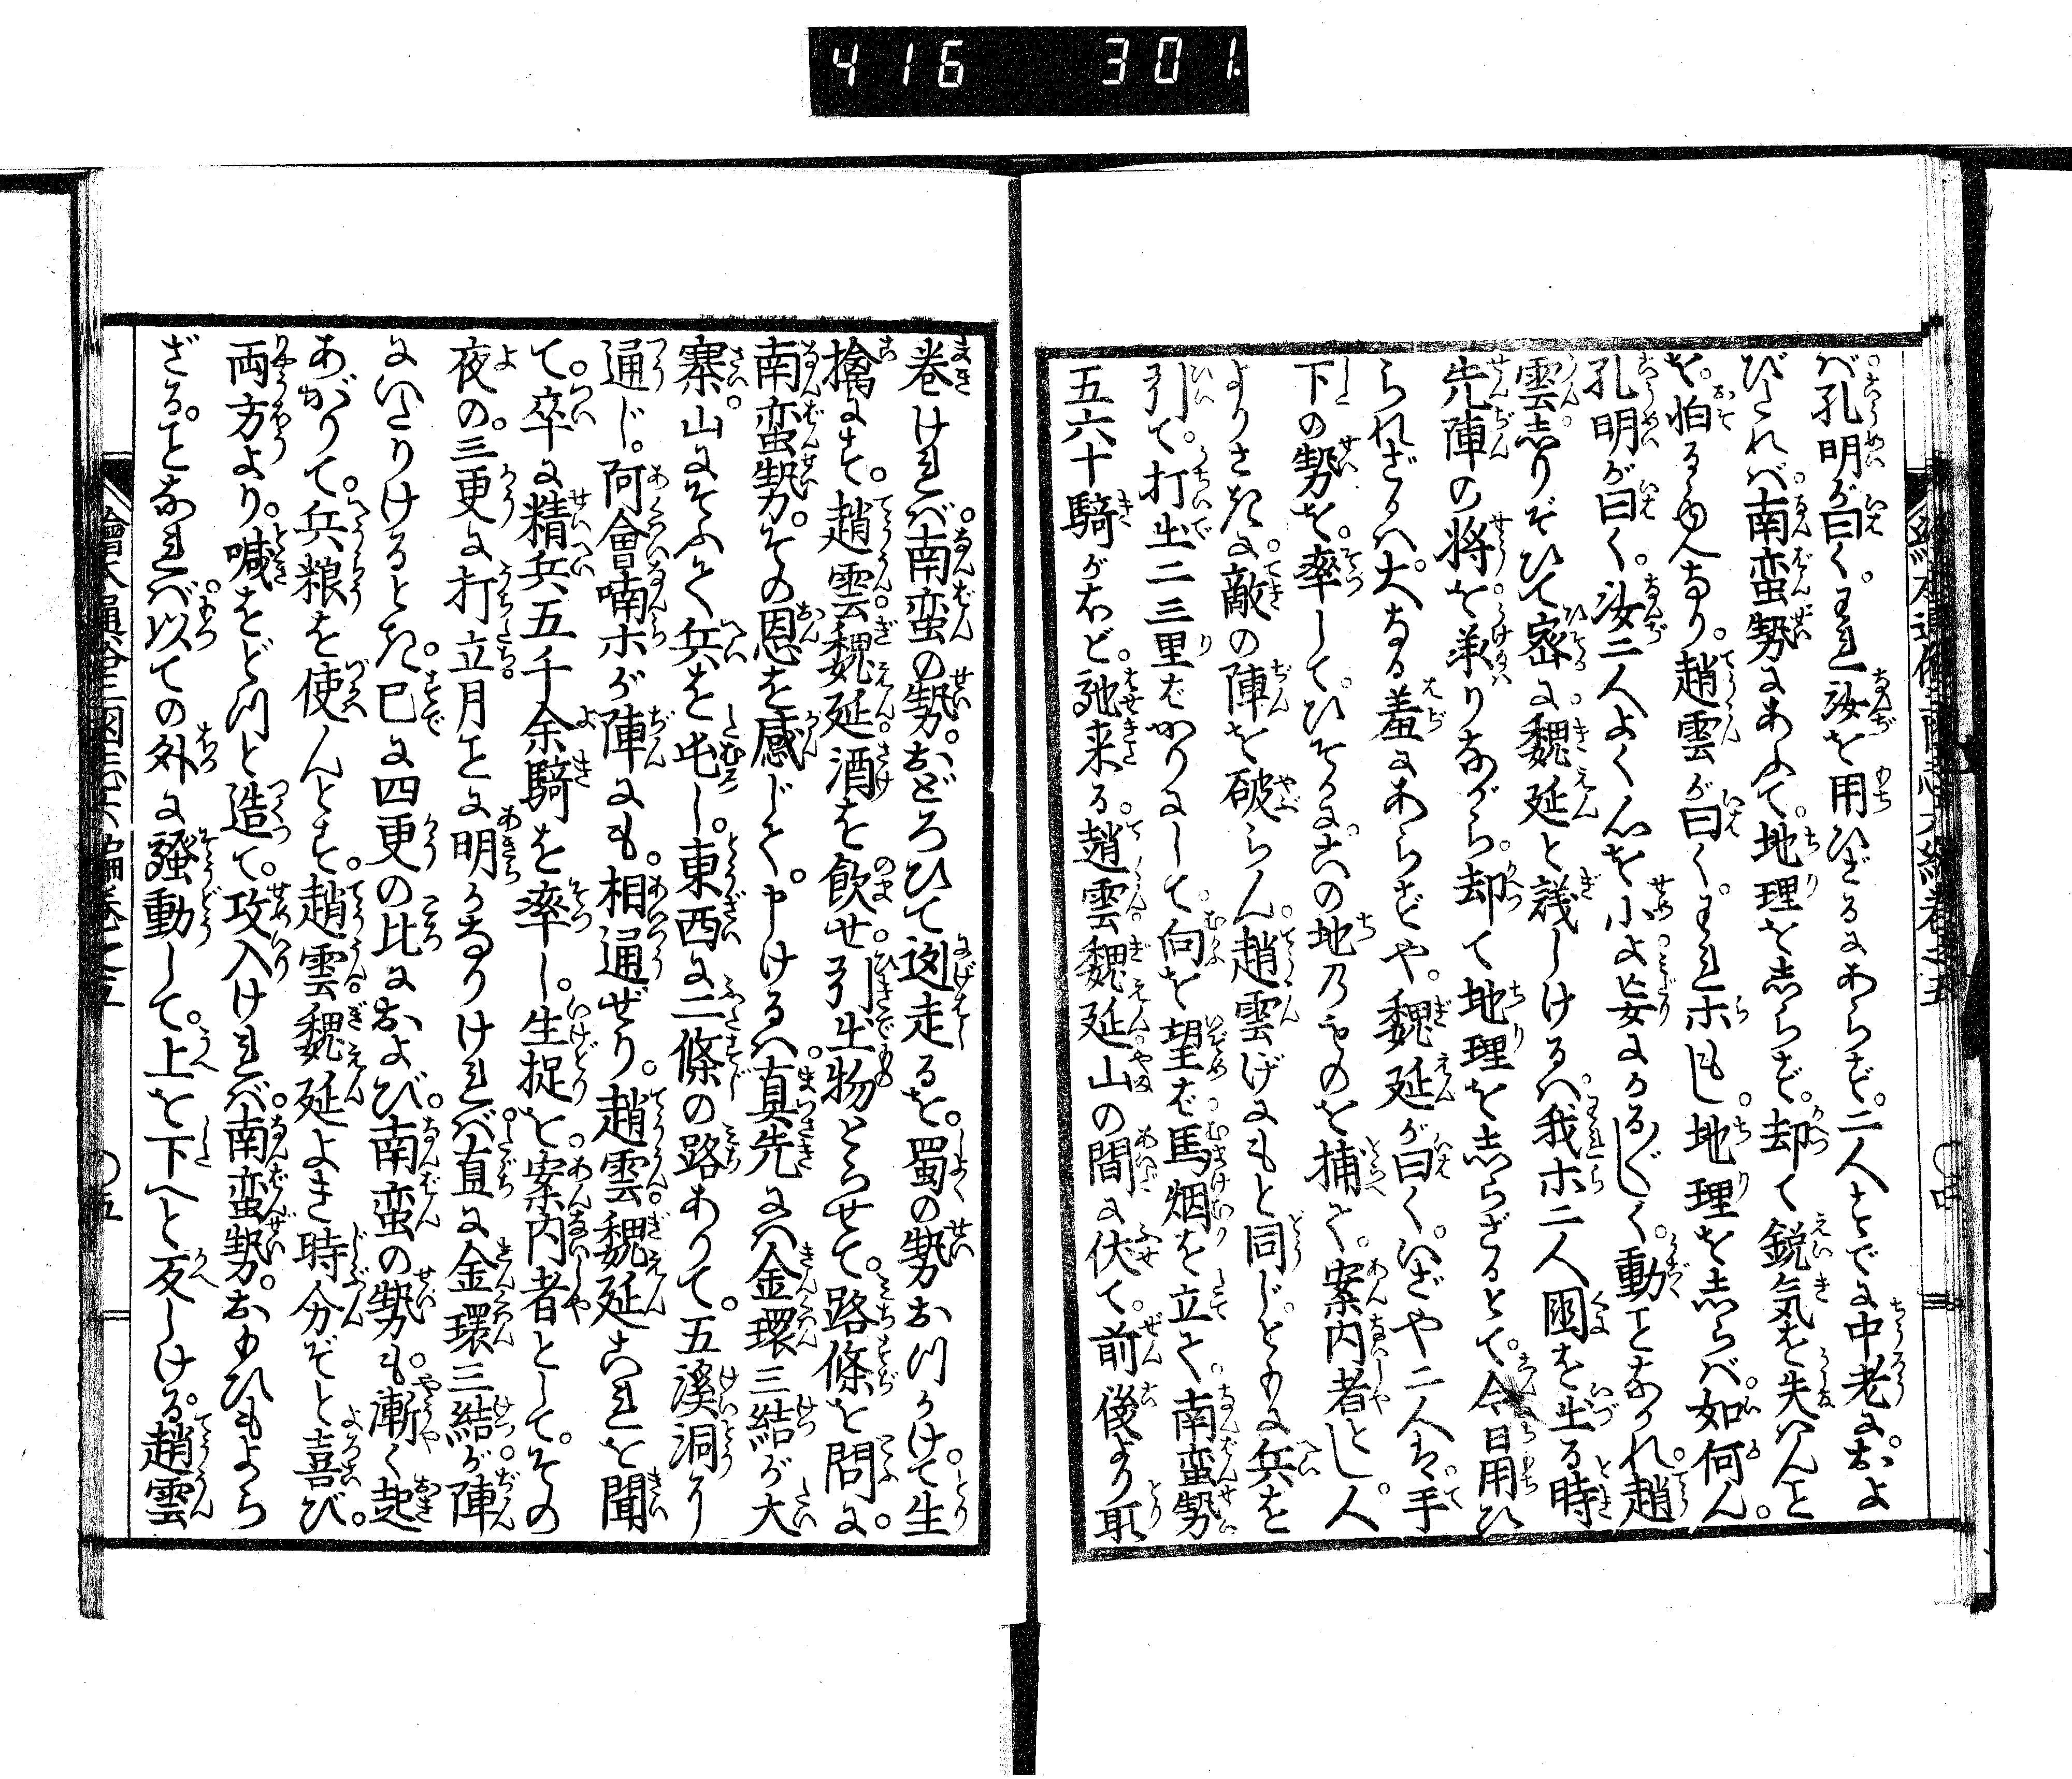 416 301.
ば孔明が曰くわれ汝を用ひざるにあらず二人すでに中老におよ
びたれば南蛮勢にあふて地理を志らず却て鋭気を失はんこと
を怕るゆへなり趙雲が曰くわれ等もし地理を志らば如何ん
孔明が曰く汝二人よく心を小よ妄りに動ことなかれ趙
雲志りぞひて密に魏延と議しけるハ我等二人国を出る時
先陣の将を承りながら却て地理を志らざるとて今日用ひ
られざるハ大なる羞にあらずや魏延が曰くいざや二人手
下の勢を率してひそかに此の地のものを捕へて案内者とし人
よりさきに敵の陣を破らん趙雲げにもと同じともに兵を
引て打出二三里ばかりにして向を望ば馬烟を立て南蛮勢
五六十騎がほど馳来る趙雲魏延山の間に伏て前後より取
巻ければ南蛮の勢おどろひて迯走るを蜀の勢おつかけて生
擒にす趙雲魏延酒を飲せ引出物とらせて路條を問に
南蛮勢その恩を感じて申けるハ真先にハ金環三結が大
寨山にそふて兵を屯し東西に二條の路ありて五溪洞に
通じ阿會喃等が陣にも相通ぜり趙雲魏延これを聞
て卒に精兵五千余騎を率し生捉を案内者としてその
夜の三更に打立月ことに明かなりければ直に金環三結が陣
にいたりけるとき已に四更の比におよび南蛮の勢も漸く起
あがりて兵粮を使んとす趙雲魏延よき時分ぞと喜び
両方より喊をどつと造て攻入ければ南蛮勢おもひもよら
ざることなれば以ての外に騒動して上を下へと反しける趙雲